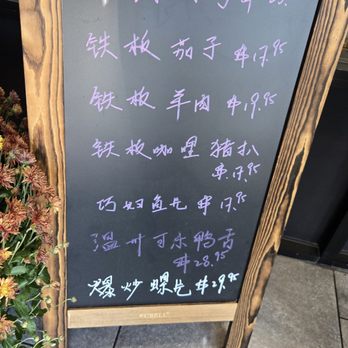 铁板茄子 $17.95
铁板羊肉 $19.95
铁板咖喱猪扒
$17.95
巧妇鱼片 $17.95
温州可乐鸭舌
$28.95
爆炒螺片 $29.95